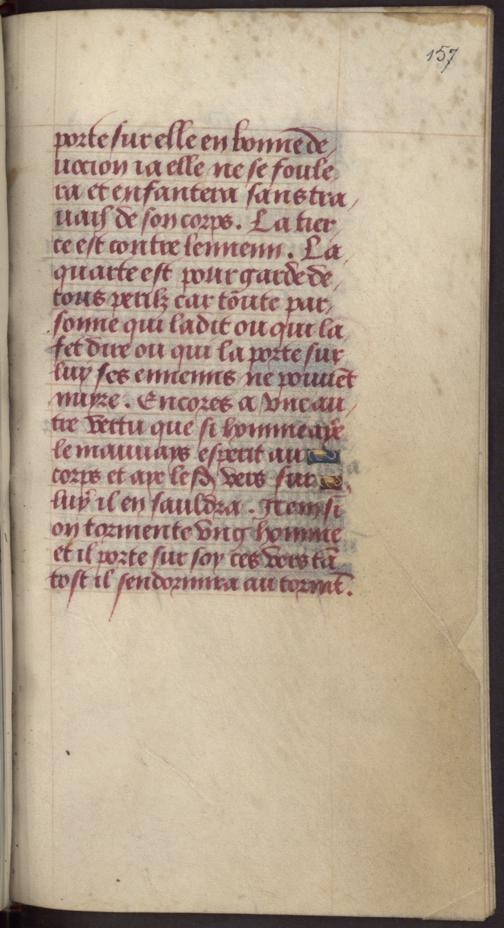 157
porte sur elle en bonne de
uocion ia elle ne se foule
ra et enfantera sans tra
uail de son corps. La tier
ce est contre lennemi. La
quarte est pour garde de
tous perilz car toute par
sonne qui la dit ou qui la
fet dire ou qui la porte sur
luy ses ennemis ne pouuēt
nuyre. Encores a vne au
tre vertu que si homme aye
le mauuays esperit au
corps et aye lesd vers sur
luy il en sauldra. Item si
on tormente vng homme
et il porte sur soy ces vers tā
tost il sendormira au tormēt.